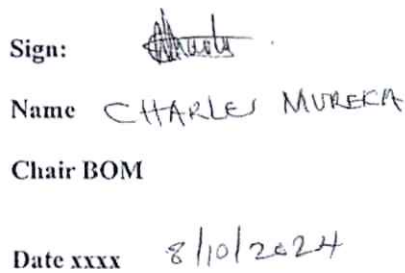 Sign:
Name CHARLES MUREKA
Chair BOM
Date xxxx 8/10/2024